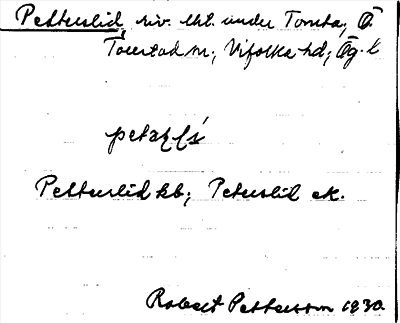 Petterslid, riv. lht. under Tomta, Ö.
Tourstad sn; Vifolka hd; Ög. l.
Petterslid kb; Peterslid ek.
Robert Pettersson 1930.